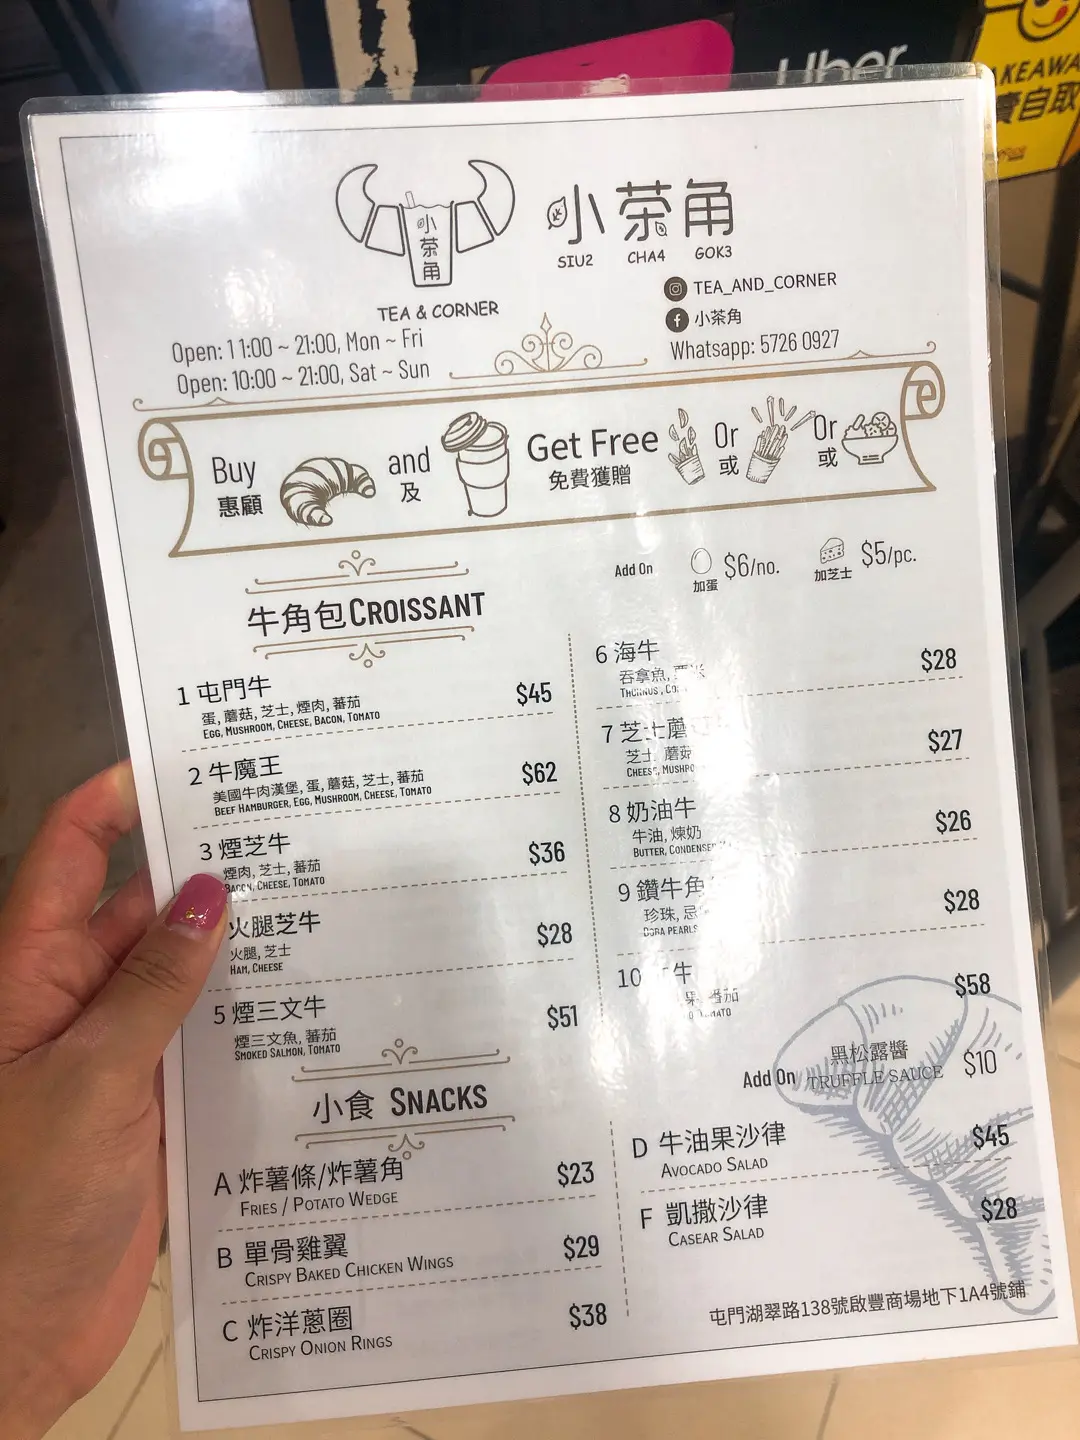 Uber
KEAWA
自取
小茶角
小茶角
SIU2 CHA4 GOK3
TEA & CORNER
TEA_AND_CORNER
小茶角
Whatsapp: 5726 0927
Open: 11:00 ~ 21:00, Mon ~ Fri
Open: 10:00 ~ 21:00, Sat ~ Sun
Buy and Get Free Or Or
惠顧 及 免費獲贈 或 或
Add On $6/no. $5/pc.
加蛋 加芝士
牛角包 CROISSANT
1 屯門牛 $45
蛋, 蘑菇, 芝士, 煙肉, 蕃茄
EGG, MUSHROOM, CHEESE, BACON, TOMATO
2 牛魔王 $62
美國牛肉漢堡, 蛋, 蘑菇, 芝士, 蕃茄
BEEF HAMBURGER, EGG, MUSHROOM, CHEESE, TOMATO
3 煙芝牛 $36
煙肉, 芝士, 蕃茄
BACON, CHEESE, TOMATO
火腿芝牛 $28
火腿, 芝士
HAM, CHEESE
5 煙三文牛 $51
煙三文魚, 蕃茄
SMOKED SALMON, TOMATO
6 海牛 $28
吞拿魚,
7 芝士蘑 $27
芝士 蘑菇
CHEESE,
8 奶油牛 $26
牛油, 煉奶
BUTTER,
9 鑽牛角 $28
珍珠,
PEARLS
10 牛 $58
果, 番茄
TOMATO
黑松露醬
Add On TRUFFLE SAUCE $10
小食 SNACKS
A 炸薯條/炸薯角 $23
FRIES / POTATO WEDGE
B 單骨雞翼 $29
CRISPY BAKED CHICKEN WINGS
C 炸洋蔥圈 $38
CRISPY ONION RINGS
D 牛油果沙律 $45
AVOCADO SALAD
F 凱撒沙律 $28
CASEAR SALAD
屯門湖翠路138號啟豐商場地下1A4號鋪